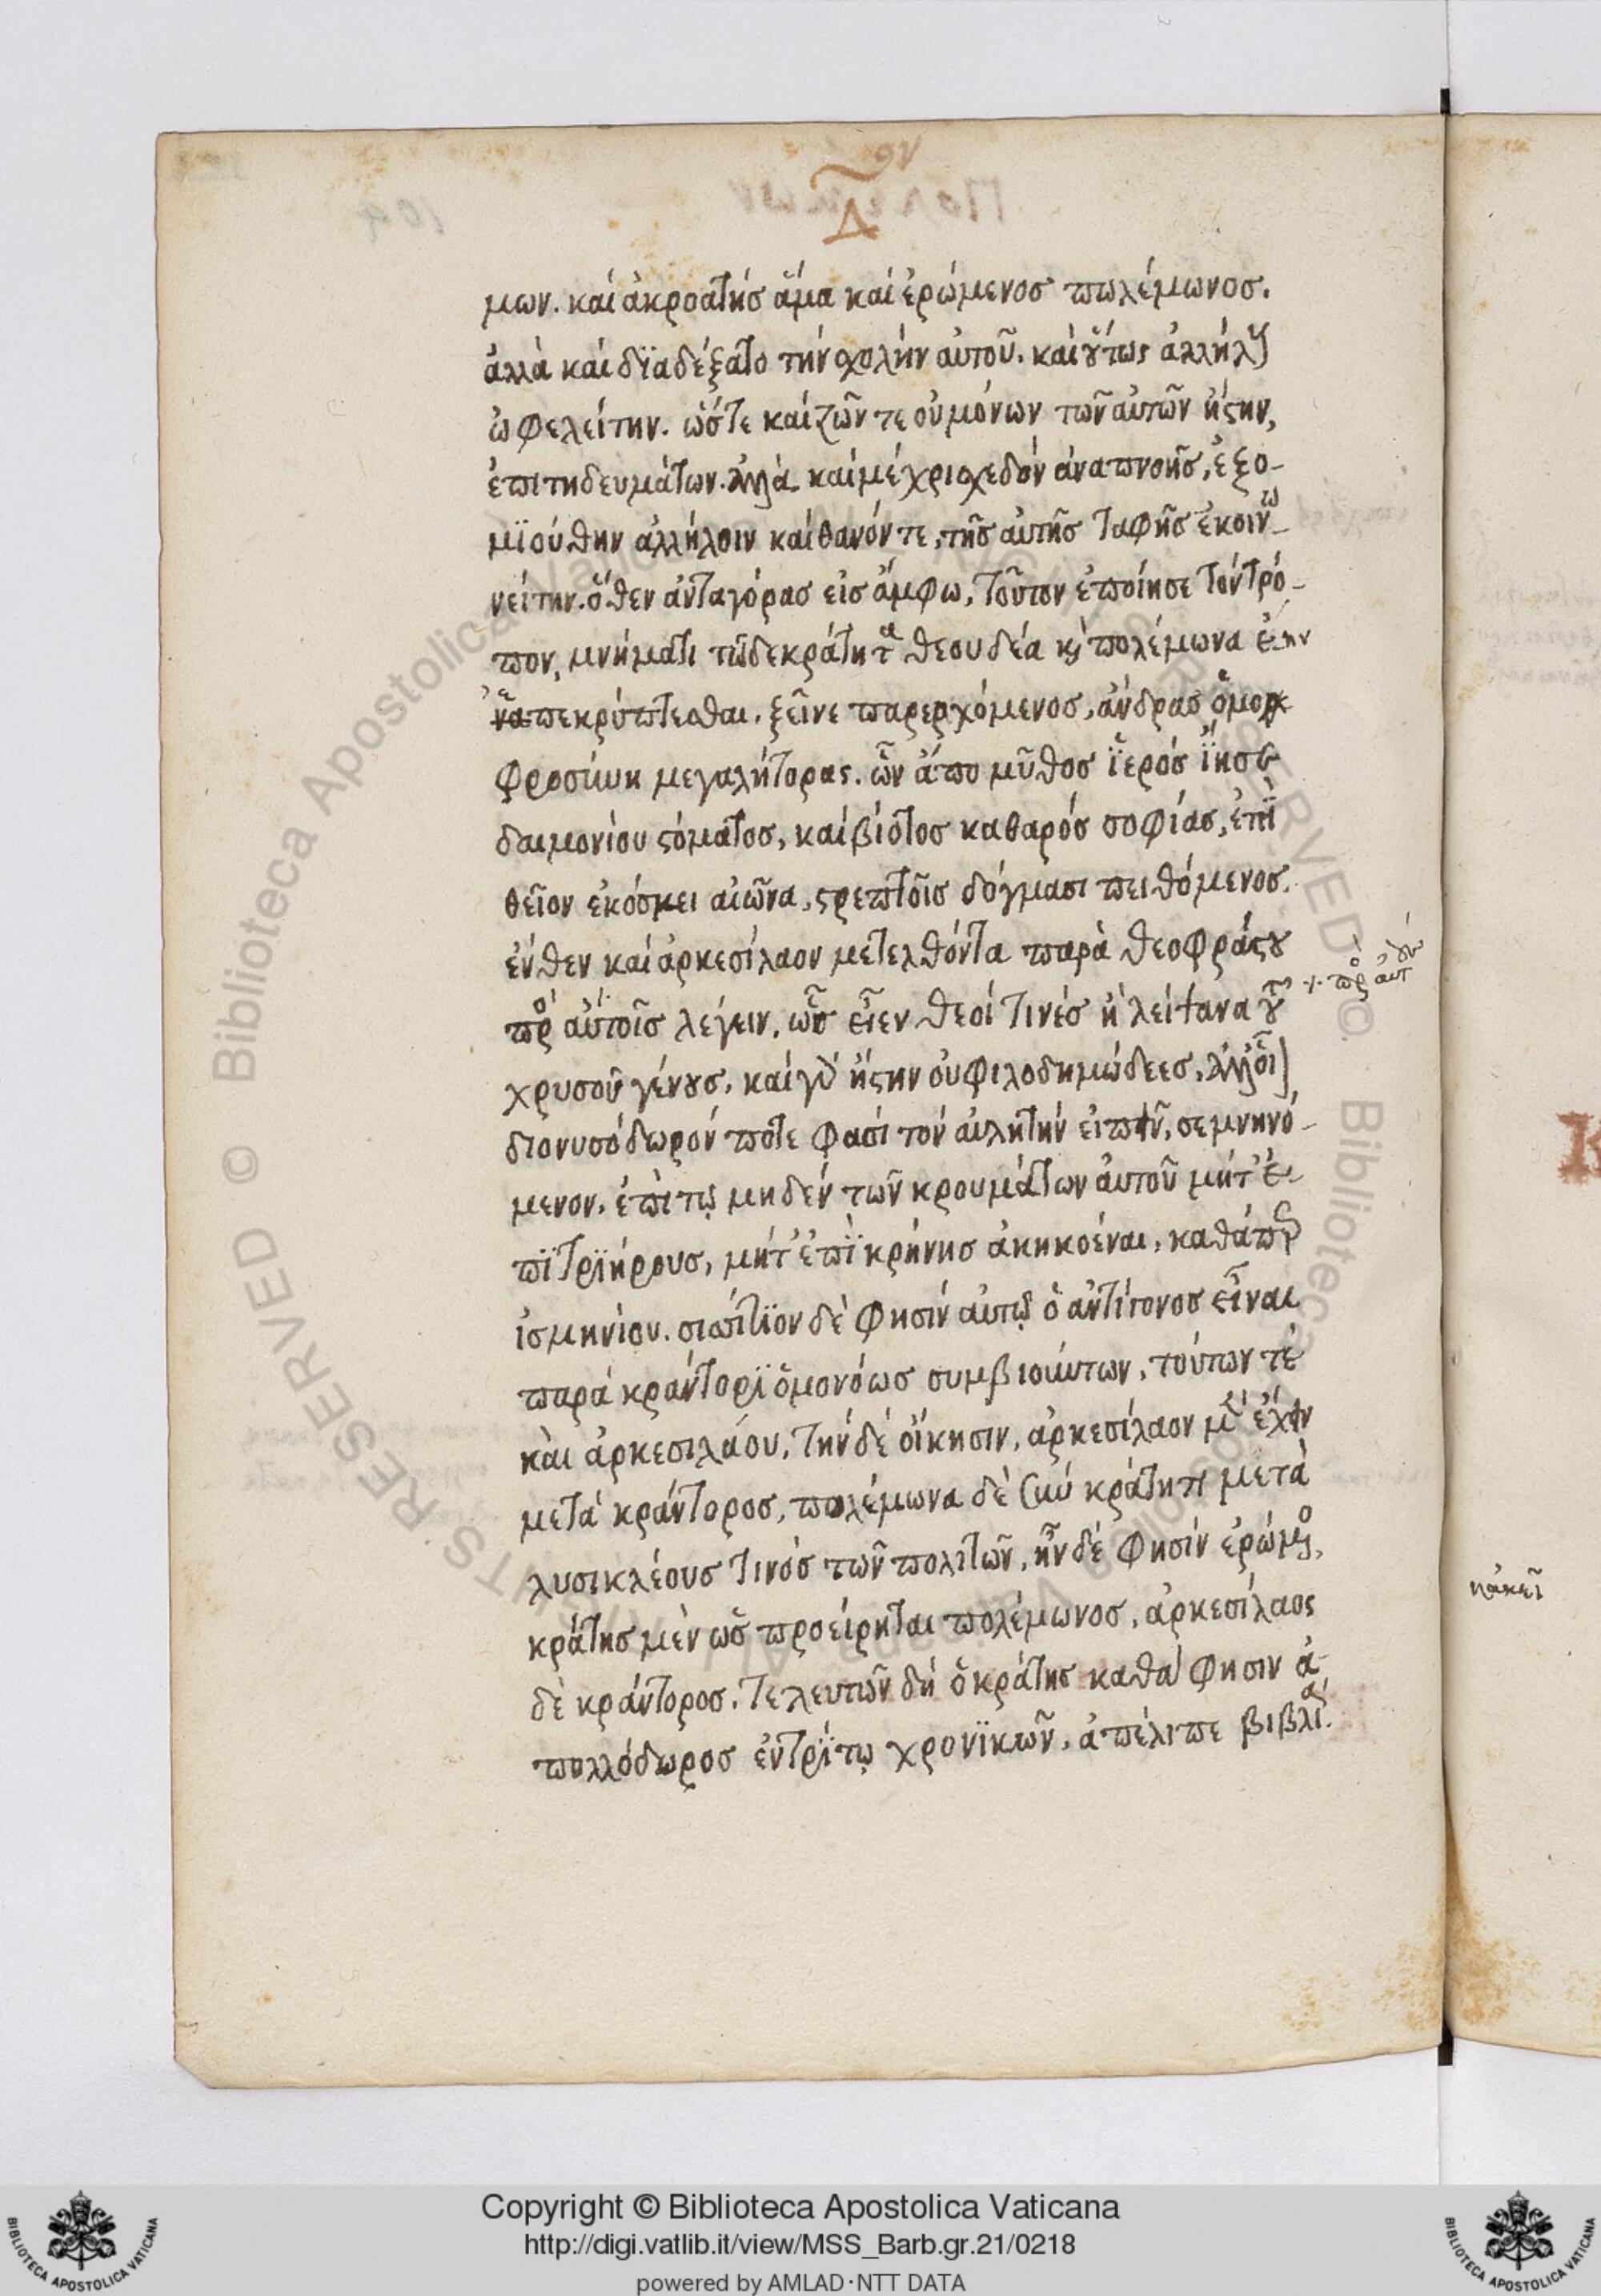 Δ
μων. καὶ ἀκροατής ἅμα καὶ ἐρώμενος πωλέμωνος.
ἀλλὰ καὶ δϊαδέξατο τὴν σχολὴν αὐτοῦ. καὶ οὕτως ἀλλήλ
ὠφελείτην. ὥστε καὶ ζῶν τε οὐ μόνων τῶν αὐτῶν ἤστην,
ἐπιτηδευμάτων. ἀλλὰ καὶ μέχρι σχεδόν ἀναπνοῆς, ἐξο-
μϊούσθην ἀλλήλοιν καὶ θανόντε, τῆς αὐτῆς ταφῆς ἐκοινω-
νείτην. ὅθεν ἀνταγόρας εἰς ἄμφω, τοῦτον ἐποίησε τὸν τρό-
πον, μνήματι τῶδε κράτητα θεουδέα κ πολέμωνα
πεκρύπτεσθαι. ξεῖνε παρερχόμενος, ἄνδρας ὁμο
φροσύνη μεγαλήτορας. ὧν ἄπο μῦθος ἱερός ἤησε
δαιμονίου στόματος, καὶ βίοτος καθαρός σοφίας, ἐπὶ
θεῖον ἐκόσμει αἰῶνα, στρεπτοῖς δόγμασι πειθόμενος.
ἔνθεν καὶ ἀρκεσίλαον μετελθόντα παρὰ θεοφράστου
πρὸς αὐτοῖς λέγειν, ὡς εἶεν θεοί τινές ἢ λείψανα τοῦ
χρυσοῦ γένους. καὶ γὰρ ἤστην οὐ φιλοδημώδεες, ἀλλ' οἷ
διονυσόδωρόν ποτε φασί τὸν αὐλητήν εἰπεῖν, σεμνηνό-
μενον. ἐπὶ τῷ μηδέν τῶν κρουμάτων αὐτοῦ μήτ' ἐ-
πϊ τρϊήρους, μήτ' ἐπϊ κρήνης ἀκηκοέναι, καθάπερ
ἰσμηνίου. σιπίτϊον δὲ φησίν αὐτῷ ὁ ἀντίγονος εἶναι
παρά κράντορϊ ὁμονόως συμβιούντων, τούτων τέ
καὶ ἀρκεσιλάου, τήν δέ οἴκησιν, ἀρκεσίλαον μὲν ἔχειν
μετὰ κράντορος, πολέμωνα δὲ σὺν κράτητι μετὰ
λυσικλέους τινός τῶν πολιτῶν, ἦν δέ φησίν ἐρώμενος,
κράτης μὲν ὡς προείρηται πολέμωνος, ἀρκεσίλαος
δὲ κράντορος. τελευτῶν δή ὁ κράτης καθὰ φησιν ἀ-
πολλόδωρος ἐν τρϊτῳ χρονϊκῶν, ἀπέλιπε βιβλία.
κἀκεῖ
Copyright © Biblioteca Apostolica Vaticana
http://digi.vatlib.it/view/MSS_Barb.gr.21/0218
powered by AMLAD·NTT DATA